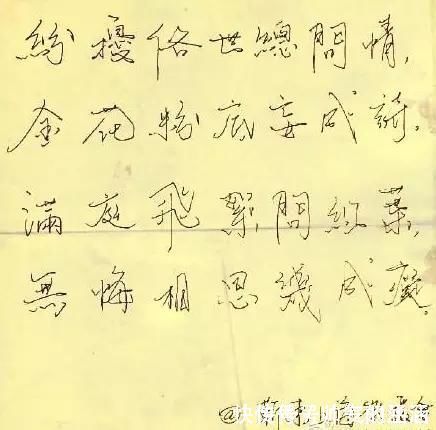 紛擾俗世總問情,
金花粉底妄成詩.
滿庭飛絮問紛葉,
無悔相思幾成癡.
@